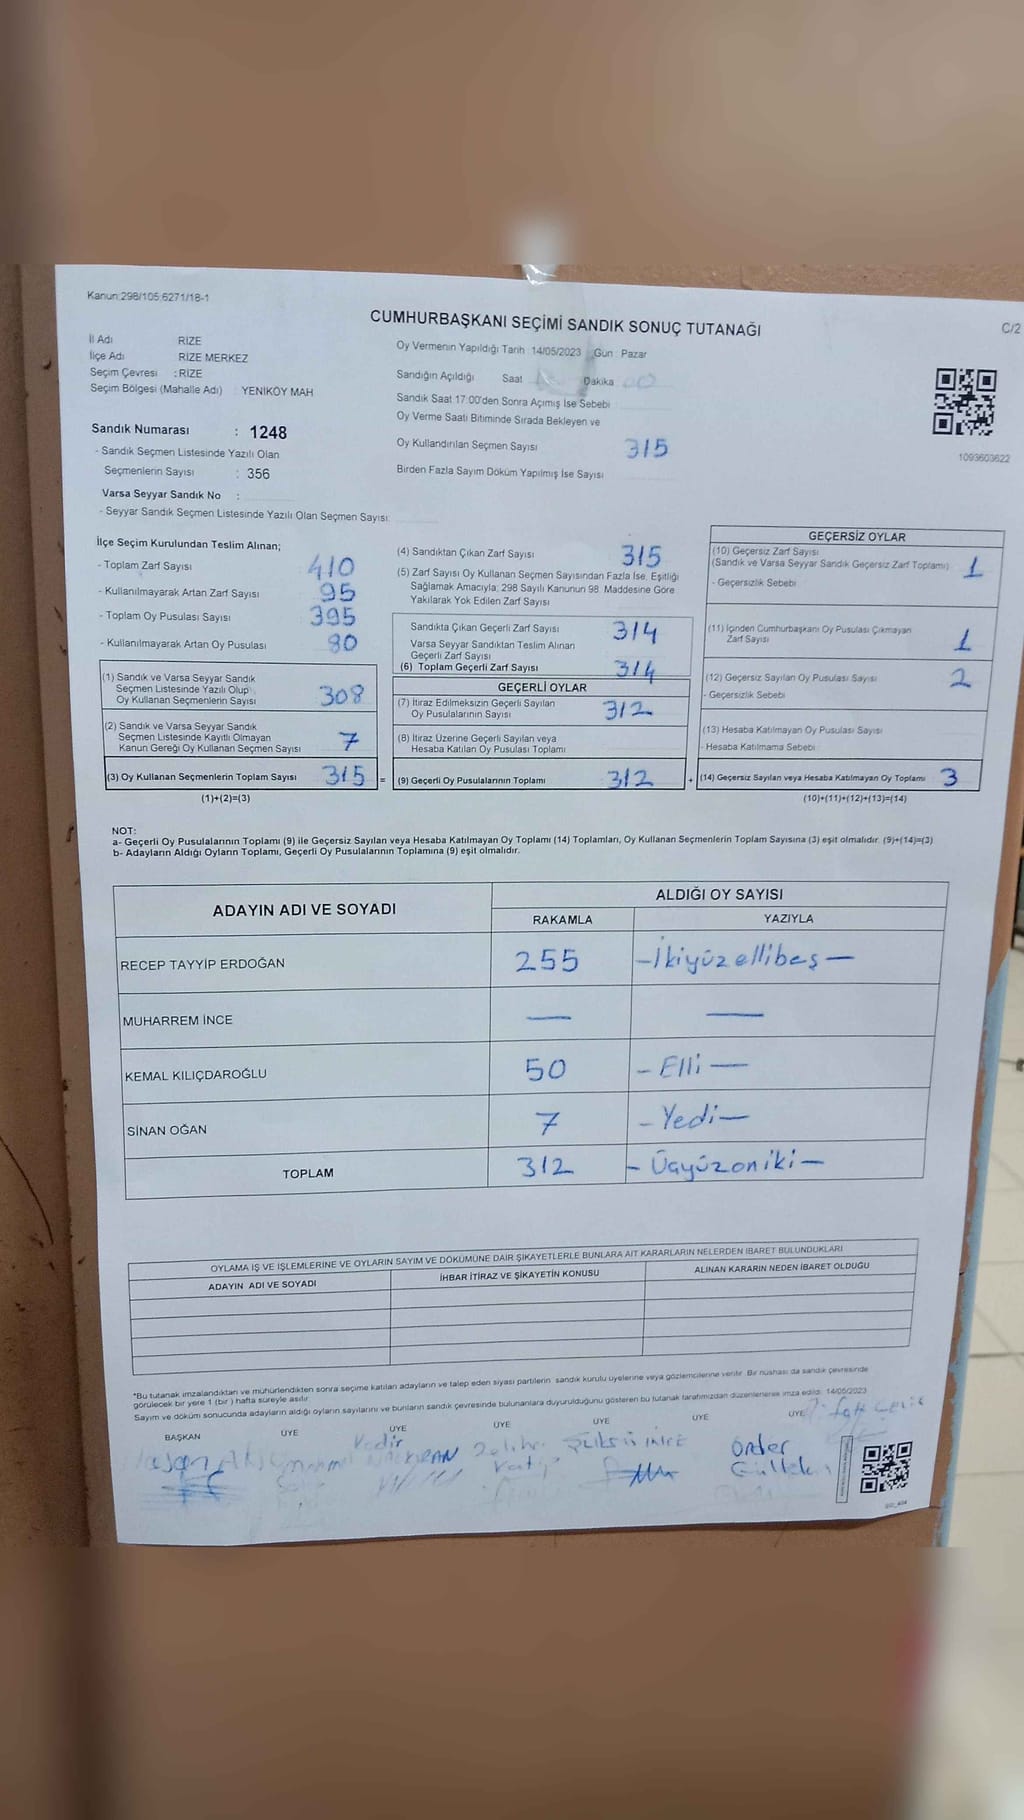 Kanun:298/105,6271/18-1
CUMHURBAŞKANI SEÇİMİ SANDIK SONUÇ TUTANAĞI
C/2
İl Adı RİZE
İlçe Adı RİZE MERKEZ
Seçim Çevresi : RİZE
Seçim Bölgesi (Mahalle Adı) YENİKÖY MAH
Sandık Numarası : 1248
- Sandık Seçmen Listesinde Yazılı Olan
Seçmenlerin Sayısı : 356
Varsa Seyyar Sandık No :
- Seyyar Sandık Seçmen Listesinde Yazılı Olan Seçmen Sayısı:
Oy Vermenin Yapıldığı Tarih : 14/05/2023 Gün : Pazar
Sandığın Açıldığı Saat Dakika 00
Sandık Saat 17:00'den Sonra Açımış İse Sebebi
Oy Verme Saati Bitiminde Sırada Bekleyen ve
Oy Kullandırılan Seçmen Sayısı 315
Birden Fazla Sayım Döküm Yapılmış İse Sayısı
1093603622
İlçe Seçim Kurulundan Teslim Alınan;
- Toplam Zarf Sayısı 410
- Kullanılmayarak Artan Zarf Sayısı 95
- Toplam Oy Pusulası Sayısı 395
- Kullanılmayarak Artan Oy Pusulası 80
(1) Sandık ve Varsa Seyyar Sandık
Seçmen Listesinde Yazılı Olup
Oy Kullanan Seçmenlerin Sayısı 308
(2) Sandık ve Varsa Seyyar Sandık
Seçmen Listesinde Kayıtlı Olmayan
Kanun Gereği Oy Kullanan Seçmen Sayısı 7
(3) Oy Kullanan Seçmenlerin Toplam Sayısı 315 =
(1)+(2)=(3)
(4) Sandıktan Çıkan Zarf Sayısı 315
(5) Zarf Sayısı Oy Kullanan Seçmen Sayısından Fazla İse, Eşitliği
Sağlamak Amacıyla; 298 Sayılı Kanunun 98. Maddesine Göre
Yakılarak Yok Edilen Zarf Sayısı
Sandıkta Çıkan Geçerli Zarf Sayısı 314
Varsa Seyyar Sandıktan Teslim Alınan
Geçerli Zarf Sayısı
(6) Toplam Geçerli Zarf Sayısı 314
GEÇERLİ OYLAR
(7) İtiraz Edilmeksizin Geçerli Sayılan
Oy Pusulalarının Sayısı 312
(8) İtiraz Üzerine Geçerli Sayılan veya
Hesaba Katılan Oy Pusulası Toplamı
(9) Geçerli Oy Pusulalarının Toplamı 312 +
GEÇERSİZ OYLAR
(10) Geçersiz Zarf Sayısı
(Sandık ve Varsa Seyyar Sandık Geçersiz Zarf Toplamı) 1
- Geçersizlik Sebebi
(11) İçinden Cumhurbaşkanı Oy Pusulası Çıkmayan
Zarf Sayısı 1
(12) Geçersiz Sayılan Oy Pusulası Sayısı 2
- Geçersizlik Sebebi
(13) Hesaba Katılmayan Oy Pusulası Sayısı
- Hesaba Katılmama Sebebi
(14) Geçersiz Sayılan veya Hesaba Katılmayan Oy Toplamı 3
(10)+(11)+(12)+(13)=(14)
NOT:
a- Geçerli Oy Pusulalarının Toplamı (9) ile Geçersiz Sayılan veya Hesaba Katılmayan Oy Toplamı (14) Toplamları, Oy Kullanan Seçmenlerin Toplam Sayısına (3) eşit olmalıdır. (9)+(14)=(3)
b- Adayların Aldığı Oyların Toplamı, Geçerli Oy Pusulalarının Toplamına (9) eşit olmalıdır.
ADAYIN ADI VE SOYADI ALDIĞI OY SAYISI
RAKAMLA YAZIYLA
RECEP TAYYİP ERDOĞAN 255 -İkiyüzellibeş-
MUHARREM İNCE — —
KEMAL KILIÇDAROĞLU 50 - Elli -
SİNAN OĞAN 7 - Yedi-
TOPLAM 312 - Üçyüzoniki -
OYLAMA İŞ VE İŞLEMLERİNE VE OYLARIN SAYIM VE DÖKÜMÜNE DAİR ŞİKAYETLERLE BUNLARA AİT KARARLARIN NELERDEN İBARET BULUNDUKLARI
ADAYIN ADI VE SOYADI İHBAR İTİRAZ VE ŞİKAYETİN KONUSU ALINAN KARARIN NEDEN İBARET OLDUĞU
*Bu tutanak imzalandıktan ve mühürlendikten sonra seçime katılan adayların ve talep eden siyasi partilerin sandık kurulu üyelerine veya gözlemcilerine verilir. Bir nüshası da sandık çevresinde
görülecek bir yere 1 (bir) hafta süreyle asılır.
Sayım ve döküm sonucunda adayların aldığı oyların sayılarını ve bunların sandık çevresinde bulunanlara duyurulduğunu gösteren bu tutanak tarafımızdan düzenlenerek imza edildi. 14/05/2023
BAŞKAN ÜYE ÜYE ÜYE ÜYE ÜYE ÜYE
Kadir
Önder